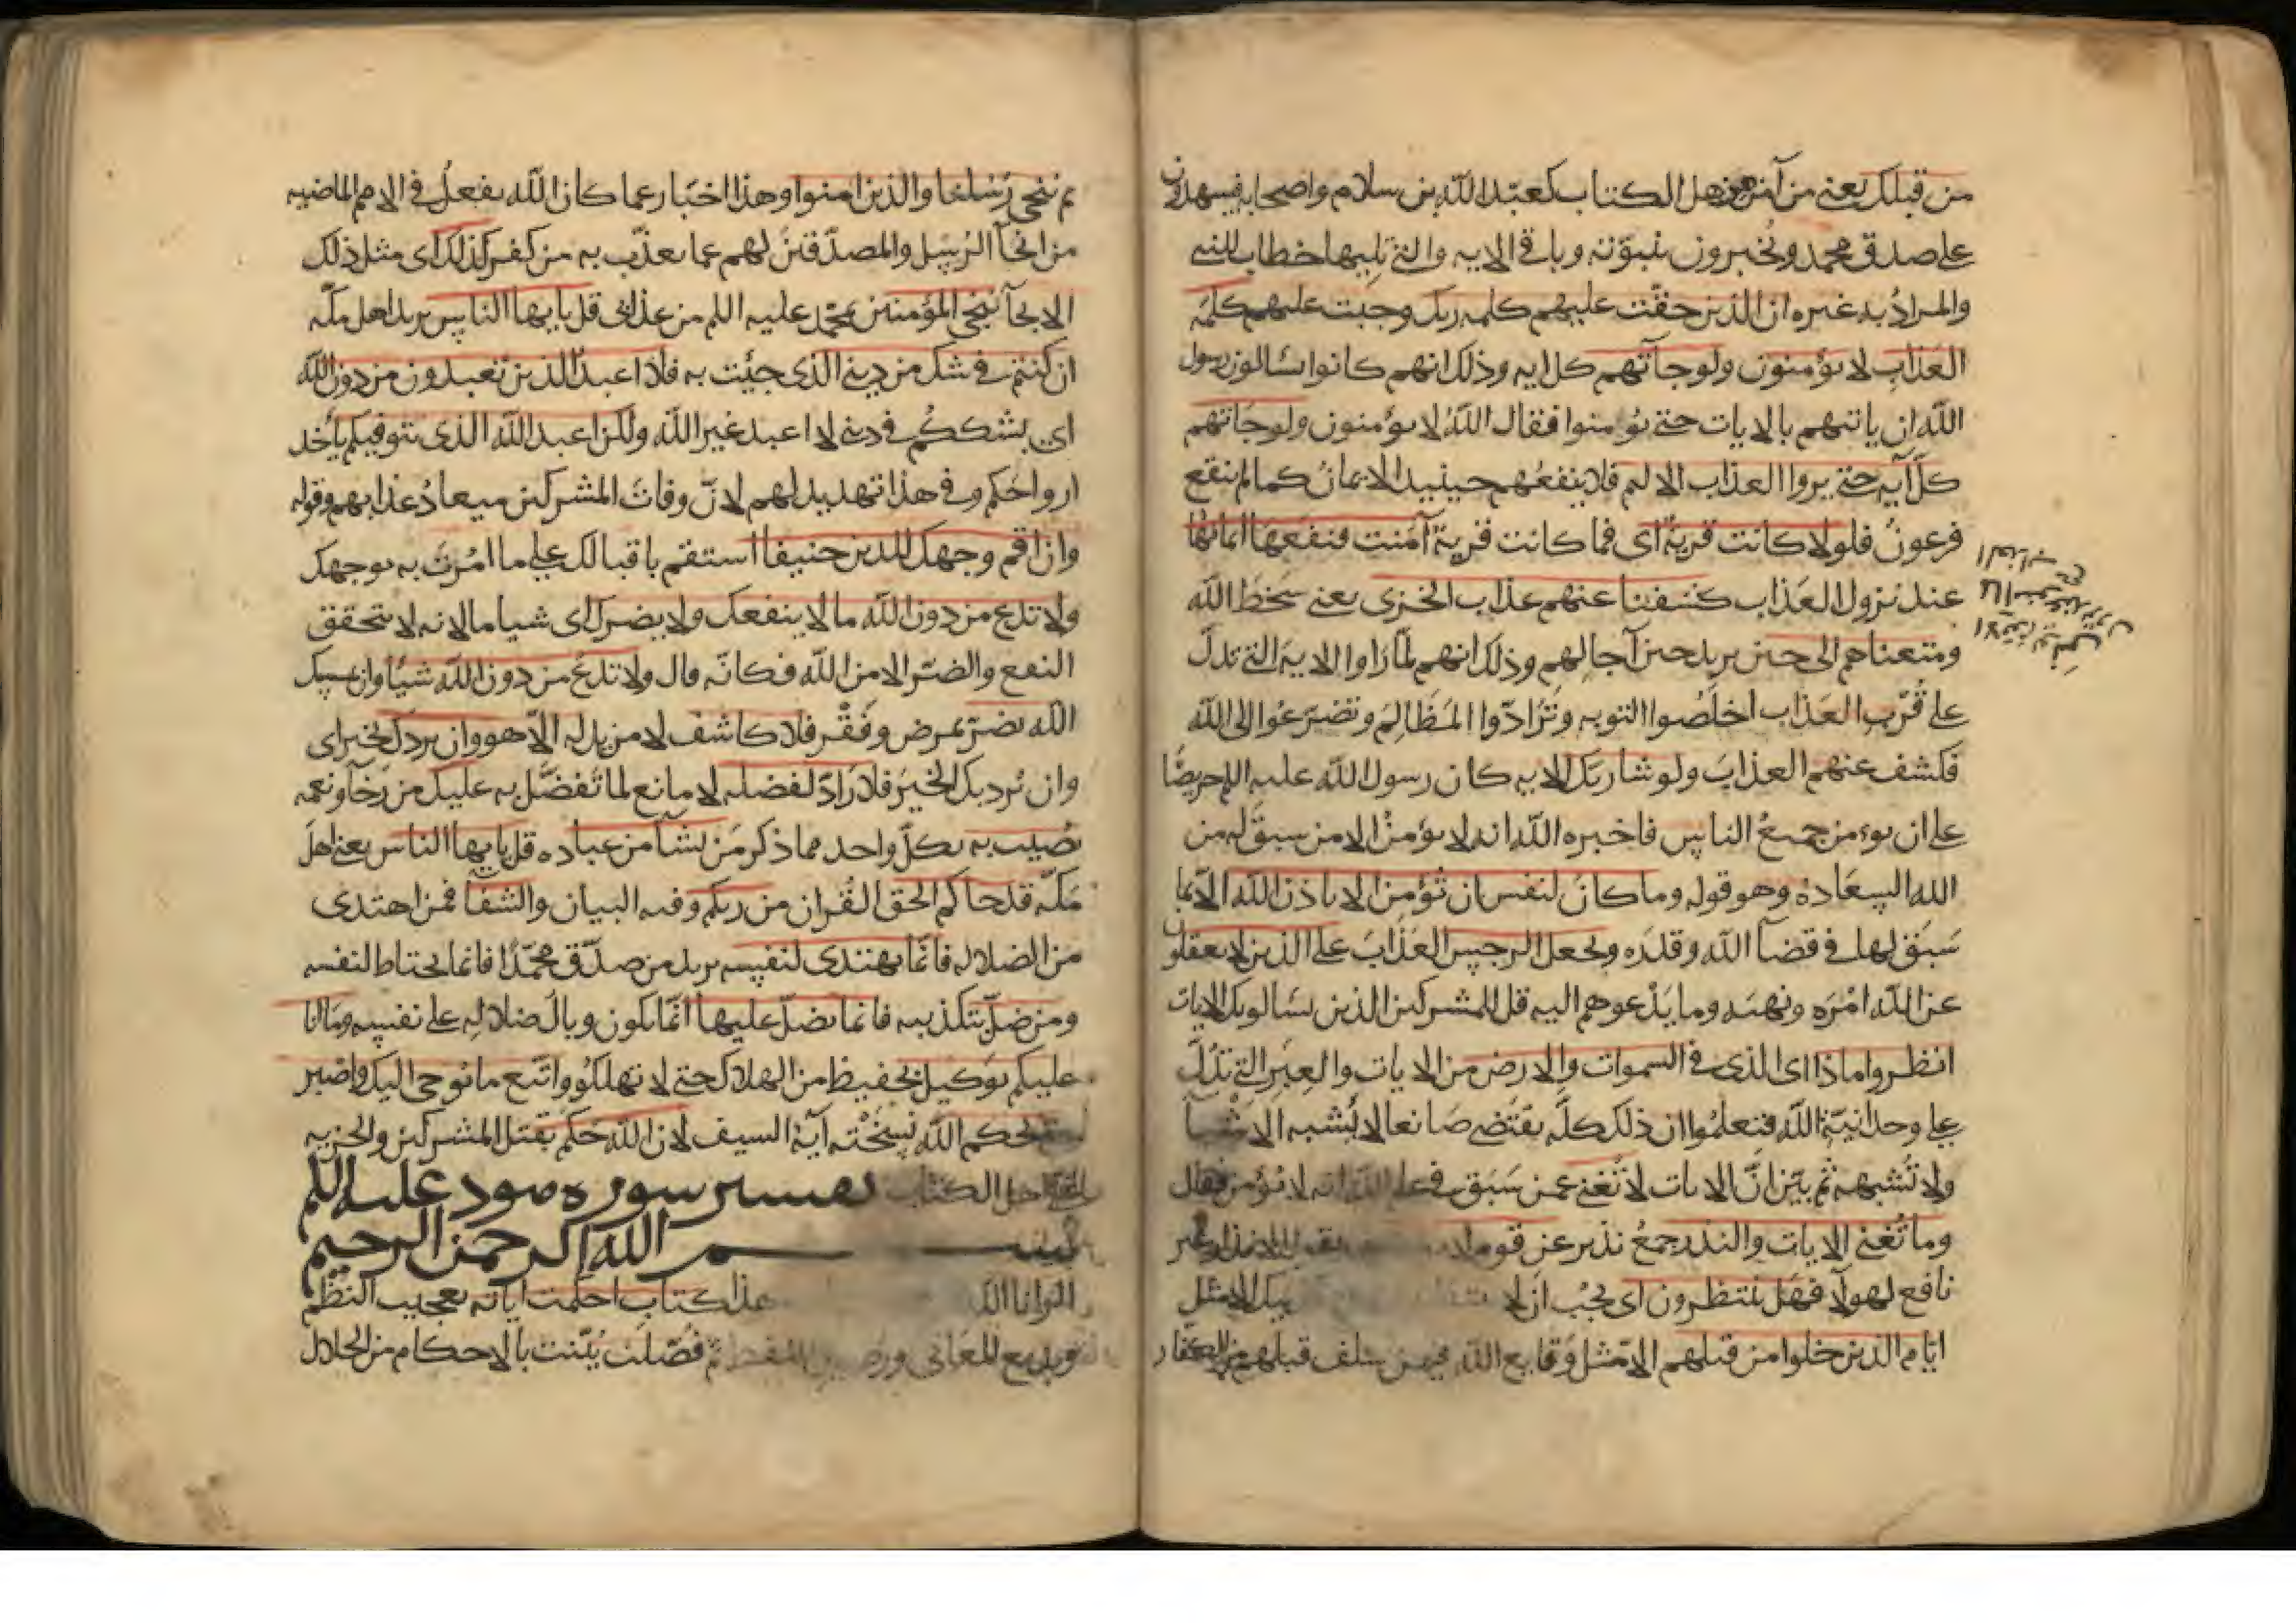 من قبلك يعني من آمن من اهل الكتاب كعبد الله بن سلام واصحابه فيشهدون
على صدق محمد ويخبرون بنبوته وباقي الايه والتي تليها خطاب للنبي
والمراد به غيره ان الذين حقت عليهم كلمه ربك وجبت عليهم كلمه
العذاب لا يؤمنون ولو جآتهم كل ايه وذلك انهم كانوا يسالون رسول
الله ان ياتيهم بالايات حتى يؤمنوا فقال الله لا يؤمنون ولو جاتهم
كل آيه حتى يروا العذاب الاليم فلا ينفعهم حينيذ الايمان كما لم ينفع
فرعون فلولا كانت قرية اى فما كانت قرية آمنت فنفعها ايمانها
عند نزول العذاب كشفنا عنهم عذاب الخزى يعني سخط الله
ومتعناهم الى حين يريد حين آجالهم وذلك انهم لما راوا الايه التي تدل
على قرب العذاب اخلصوا التوبه وترادوا المظالم وتضرعوا الى الله
فكشف عنهم العذاب ولو شا ربك الايه كان رسول الله عليه اللم حريصا
على ان يومن جميع الناس فاخبره الله انه لا يؤمن الا من سبق له من
الله السعادة وهو قوله وما كان لنفس ان تؤمن الا باذن الله الا بما
سبق لها في قضآ الله وقدره ويجعل الرجس العذاب على الذين لا يعقلون
عن الله امره ونهيه وما يدعوهم اليه قل للمشركين الذين يسالونك الايات
انظروا ماذا اى الذى في السموات والارض من الايات والعبر التي تدل
على وحدانية الله فتعلموا ان ذلك كله يقتضي صانعا لا يشبه الاشيآ
ولا تشبهه ثم بين ان الايات لا تغني عمن سبق في علم الله انه لا يؤمن فقال
وما تغني الايات والنذر جمع نذير عن قوم لا يقول الانذار غير
نافع لهولآ فهل ينتظرون اى يجب ان لا الا مثل
ايام الذين خلوا من قبلهم الا مثل وقايع الله فيمن سلف قبلهم من الكفار
ثم ننجي رسلنا والذين امنوا وهذا اخبار عما كان الله يفعل في الامم الماضيه
من انجآ الرسل والمصدقين لهم عما يعذب به من كفر كذلك اى مثل ذلك
الانجآ ننجي المؤمنين بمحمد عليه اللم من عذابي قل يا يها الناس يريد اهل مكه
ان كنتم في شك من ديني الذى جيت به فلا اعبد الذين تعبدون من دون الله
اى بشككم في ديني لا اعبد غير الله ولكن اعبد الله الذى يتوفيكم ياخذ
ارواحكم وفي هذا تهديد لهم لان وفاة المشركين ميعاد عذابهم وقوله
وان اقم وجهك للدين حنيفا استقم باقبالك على ما امرت به بوجهك
ولا تدع من دون الله ما لا ينفعك ولا يضرك اى شيا ما لانه لا يتحقق
النفع والضر الا من الله فكانه قال ولا تدع من دون الله شيا وان يمسسك
الله بضر بمرض وفقر فلا كاشف لا مزيل له الا هو وان يردك بخير اى
وان يرد بك الخير فلا راد لفضله لا مانع لما تفضل به عليك من رخآ ونعمه
يصيب به بكل واحد مما ذكر من يشآ من عباده قل يا يها الناس يعني اهل
مكه قد جاكم الحق القران من ربكم وفيه البيان والشفآ فمن اهتدى
من الضلاله فانما يهتدى لنفسه يريد من صدق محمدا فانما يحتاط لنفسه
ومن ضل بتكذيبه فانما يضل عليها انما يكون وبال ضلاله على نفسه وما انا
عليكم بوكيل بحفيظ من الهلاك حتى لا تهلكوا واتبع ما يوحى اليك واصبر
حتى يحكم الله نسخته آية السيف لان الله حكم بقتل المشركين والجزيه
على اهل الكتاب تفسير سوره هود عليه اللم
بسم الله الرحمن الرحيم
الر انا الله هذا كتاب احكمت اياته بعجيب النظم
وبديع المعاني ثم فصلت بينت بالاحكام من الحلال